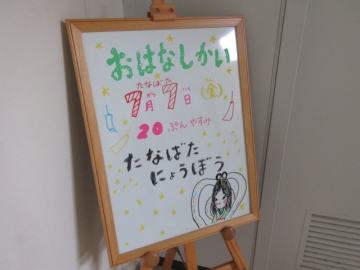 おはなしかい
たなばた
7月7日(金)
がつ か きん
20ぷんやすみ
たなばた
にょうぼう